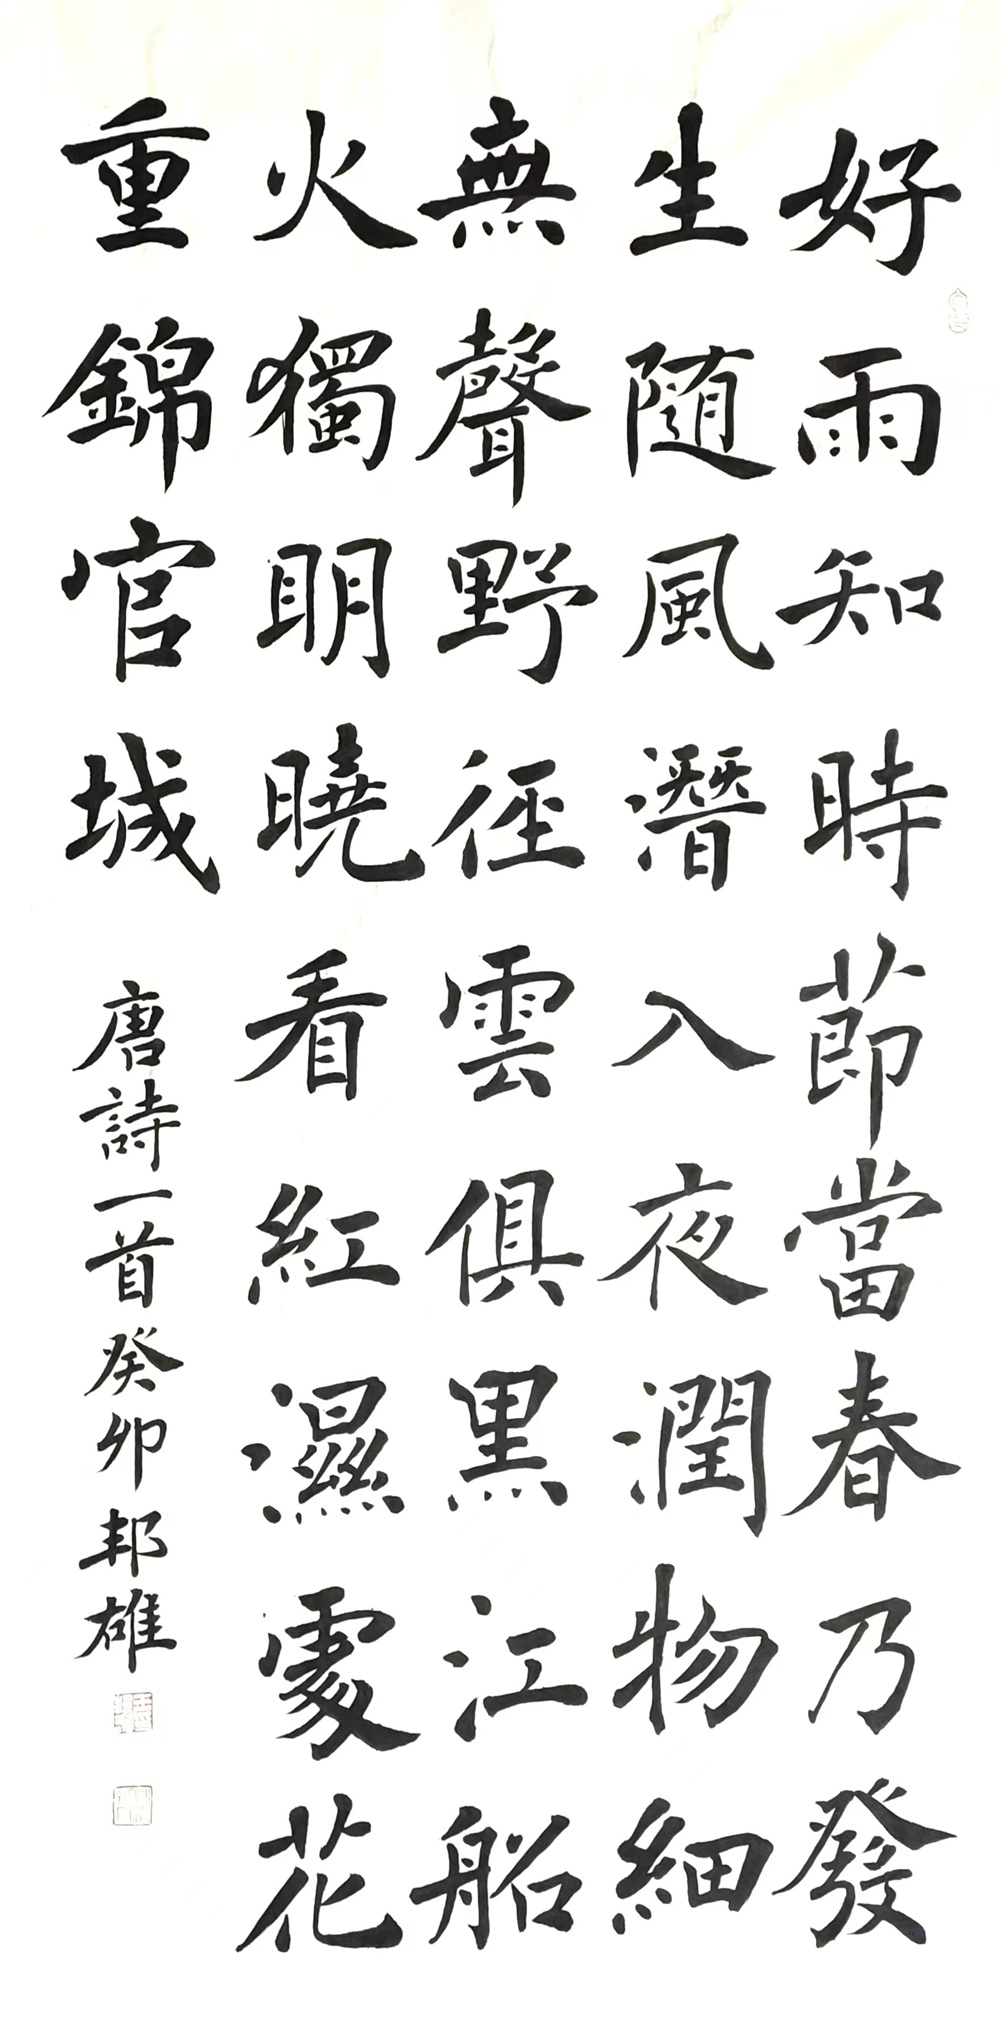 好雨知時節當春乃發
生随風潛入夜潤物細
無聲野徑雲俱黑江船
火獨明曉看紅濕處花
重錦官城
唐詩一首癸卯邦雄